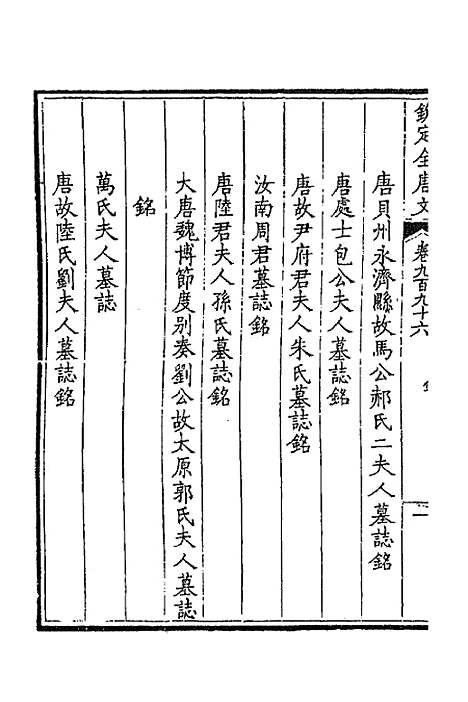 欽定全唐文 卷九百九十六 一
唐貝州永濟縣故馬公郝氏二夫人墓誌銘
唐處士包公夫人墓誌銘
唐故尹府君夫人朱氏墓誌銘
汝南周君墓誌銘
唐陸君夫人孫氏墓誌銘
大唐魏博節度别奏劉公故太原郭氏夫人墓誌
銘
萬氏夫人墓誌
唐故陸氏劉夫人墓誌銘